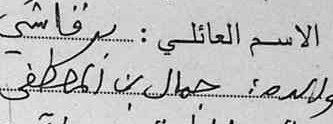 الاسم العائلي : برقاشي
والده : جمال بن المصطفى